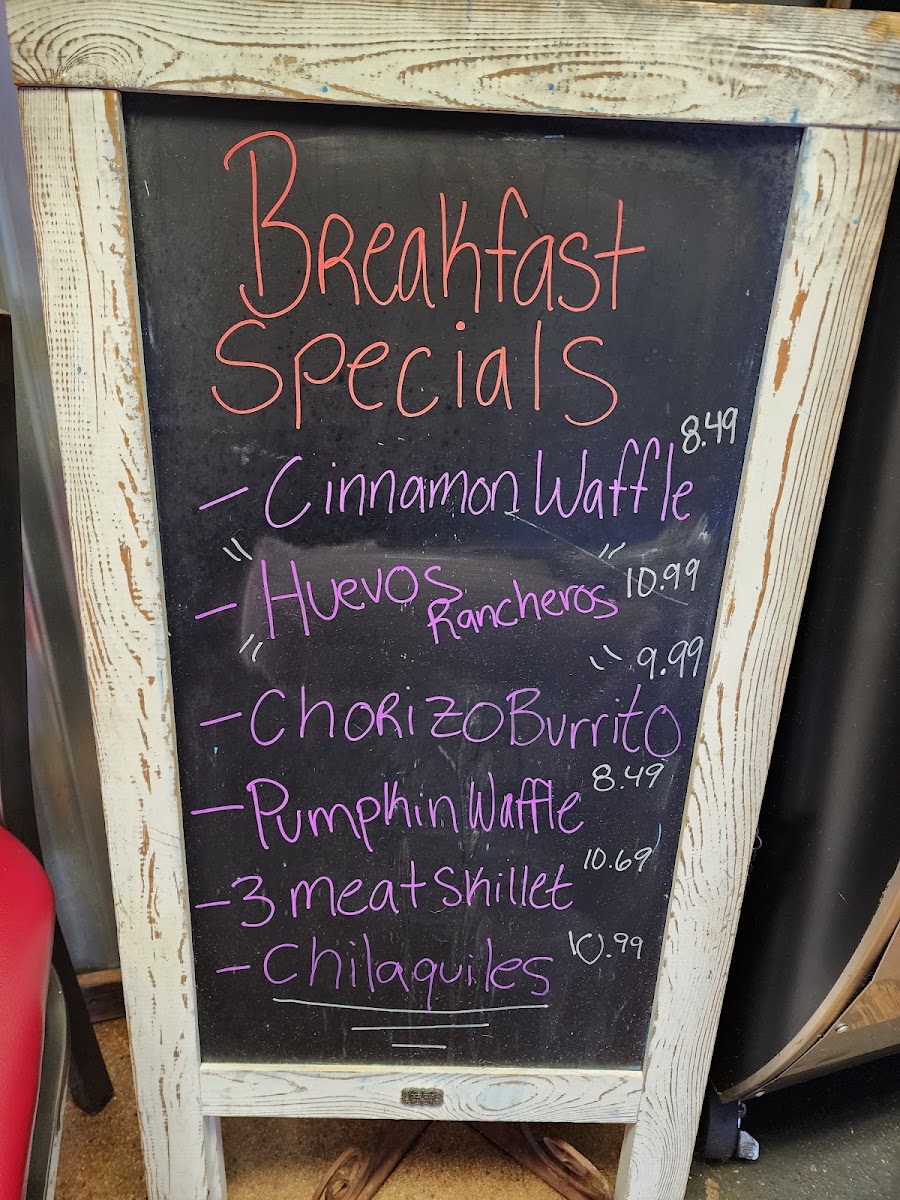 Breakfast
Specials
- Cinnamon Waffle 8.49
- Huevos Rancheros 10.99
- Chorizo Burrito 9.99
- Pumpkin Waffle 8.49
- 3 meat Skillet 10.69
- Chilaquiles 10.99